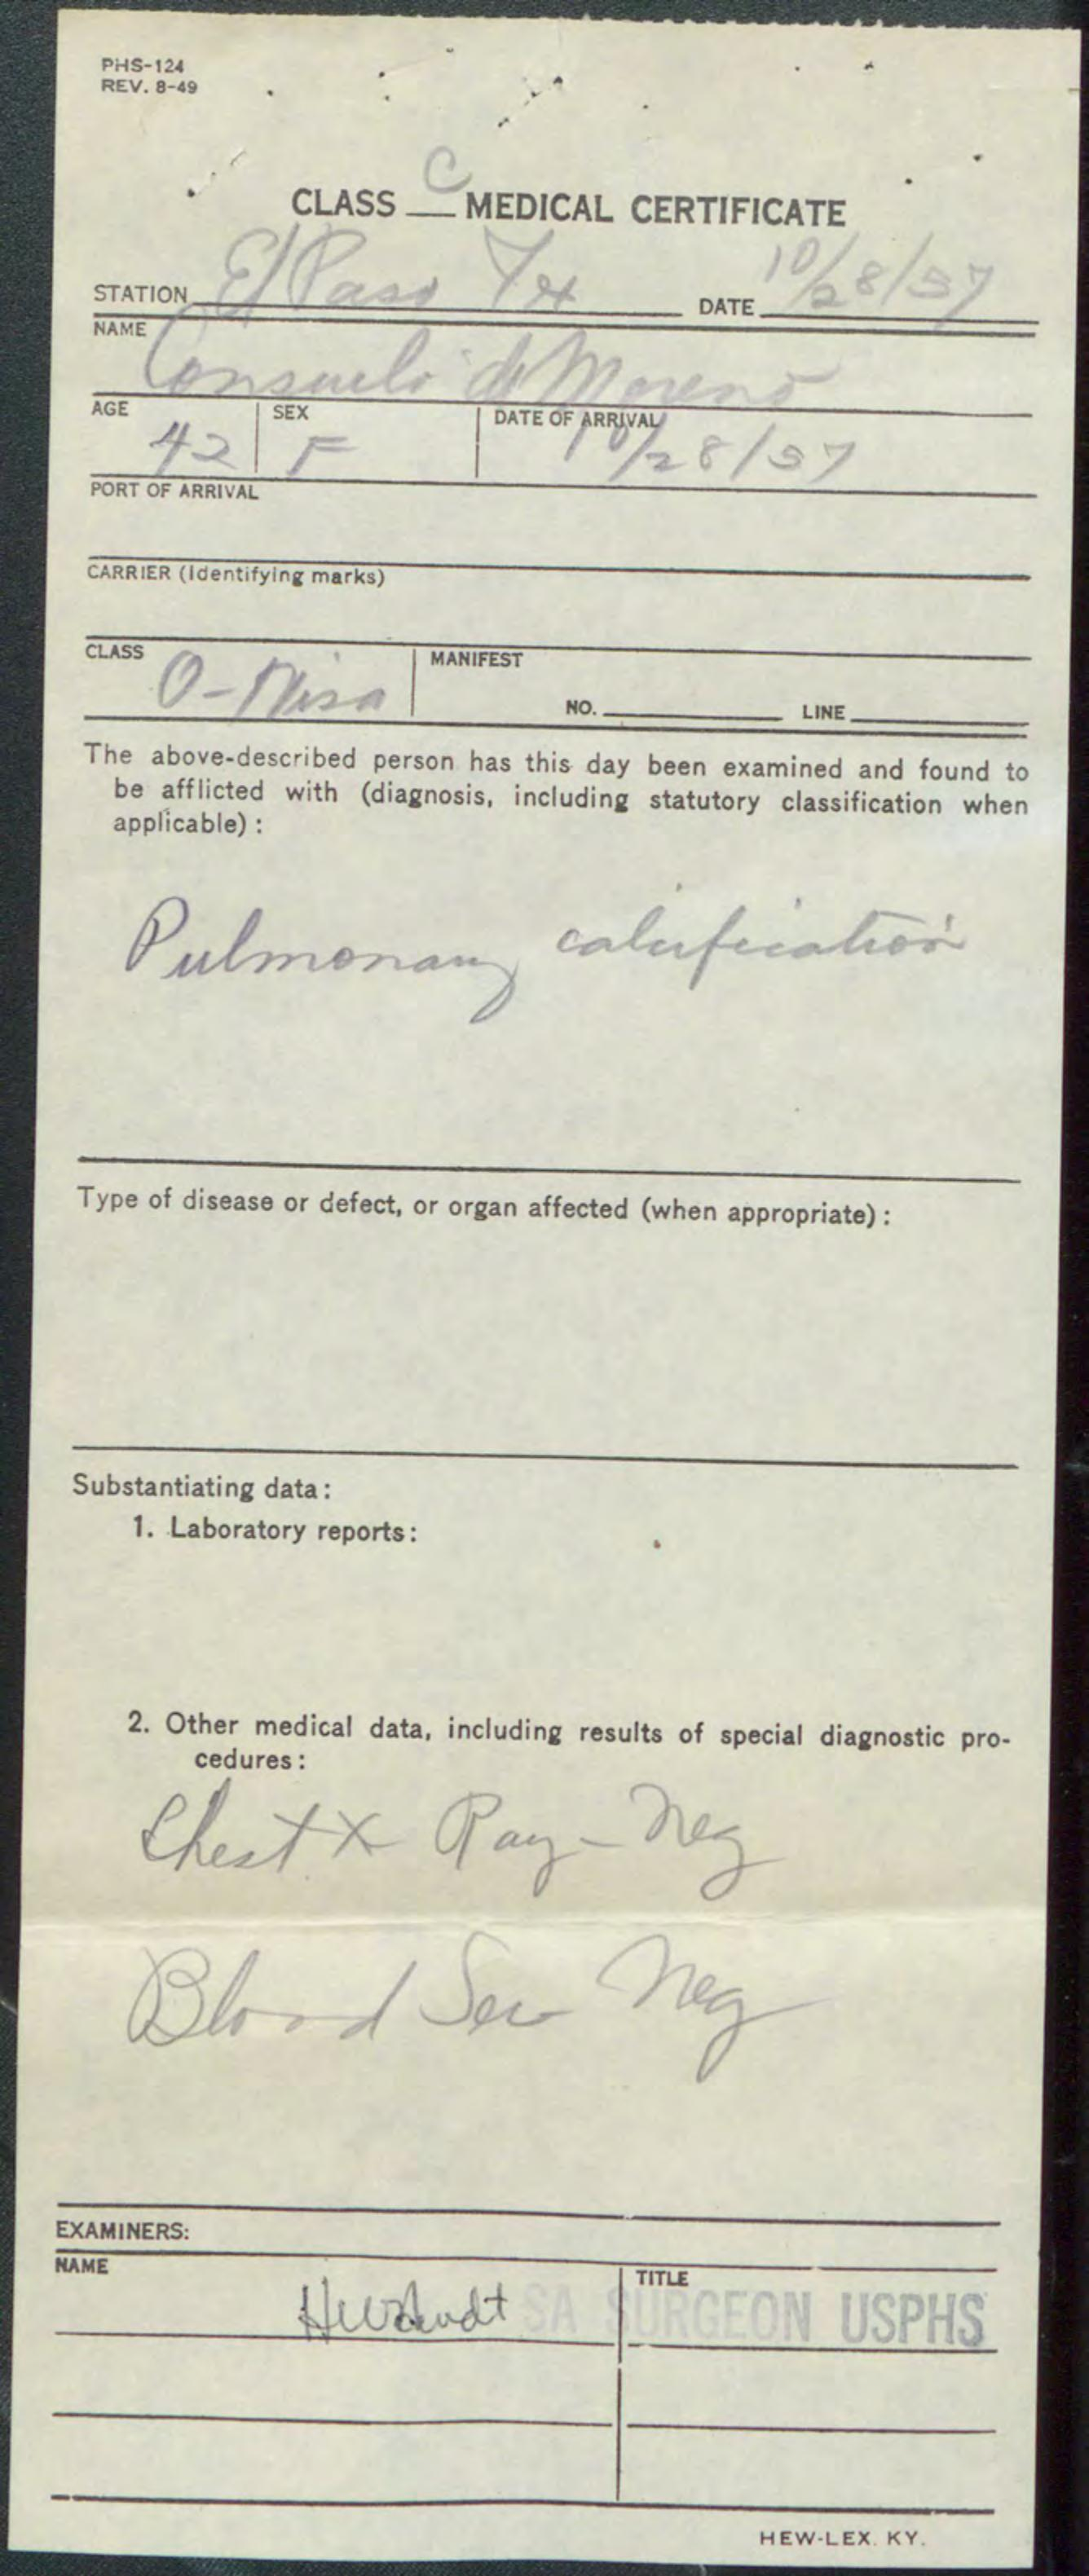 PHS-124
REV. 8-49
CLASS C MEDICAL CERTIFICATE
STATION El Paso Tex DATE 10/28/57
NAME
Consuelo de Moreno
AGE 42 SEX F DATE OF ARRIVAL 10/28/57
PORT OF ARRIVAL
CARRIER (Identifying marks)
CLASS O-Visa MANIFEST
NO. LINE
The above-described person has this day been examined and found to
be afflicted with (diagnosis, including statutory classification when
applicable) :
Pulmonary calcification
Type of disease or defect, or organ affected (when appropriate) :
Substantiating data:
1. Laboratory reports:
2. Other medical data, including results of special diagnostic pro-
cedures:
Chest X Ray - Neg
Blood Ser Neg
EXAMINERS:
NAME TITLE
SA SURGEON USPHS
HEW-LEX. KY.